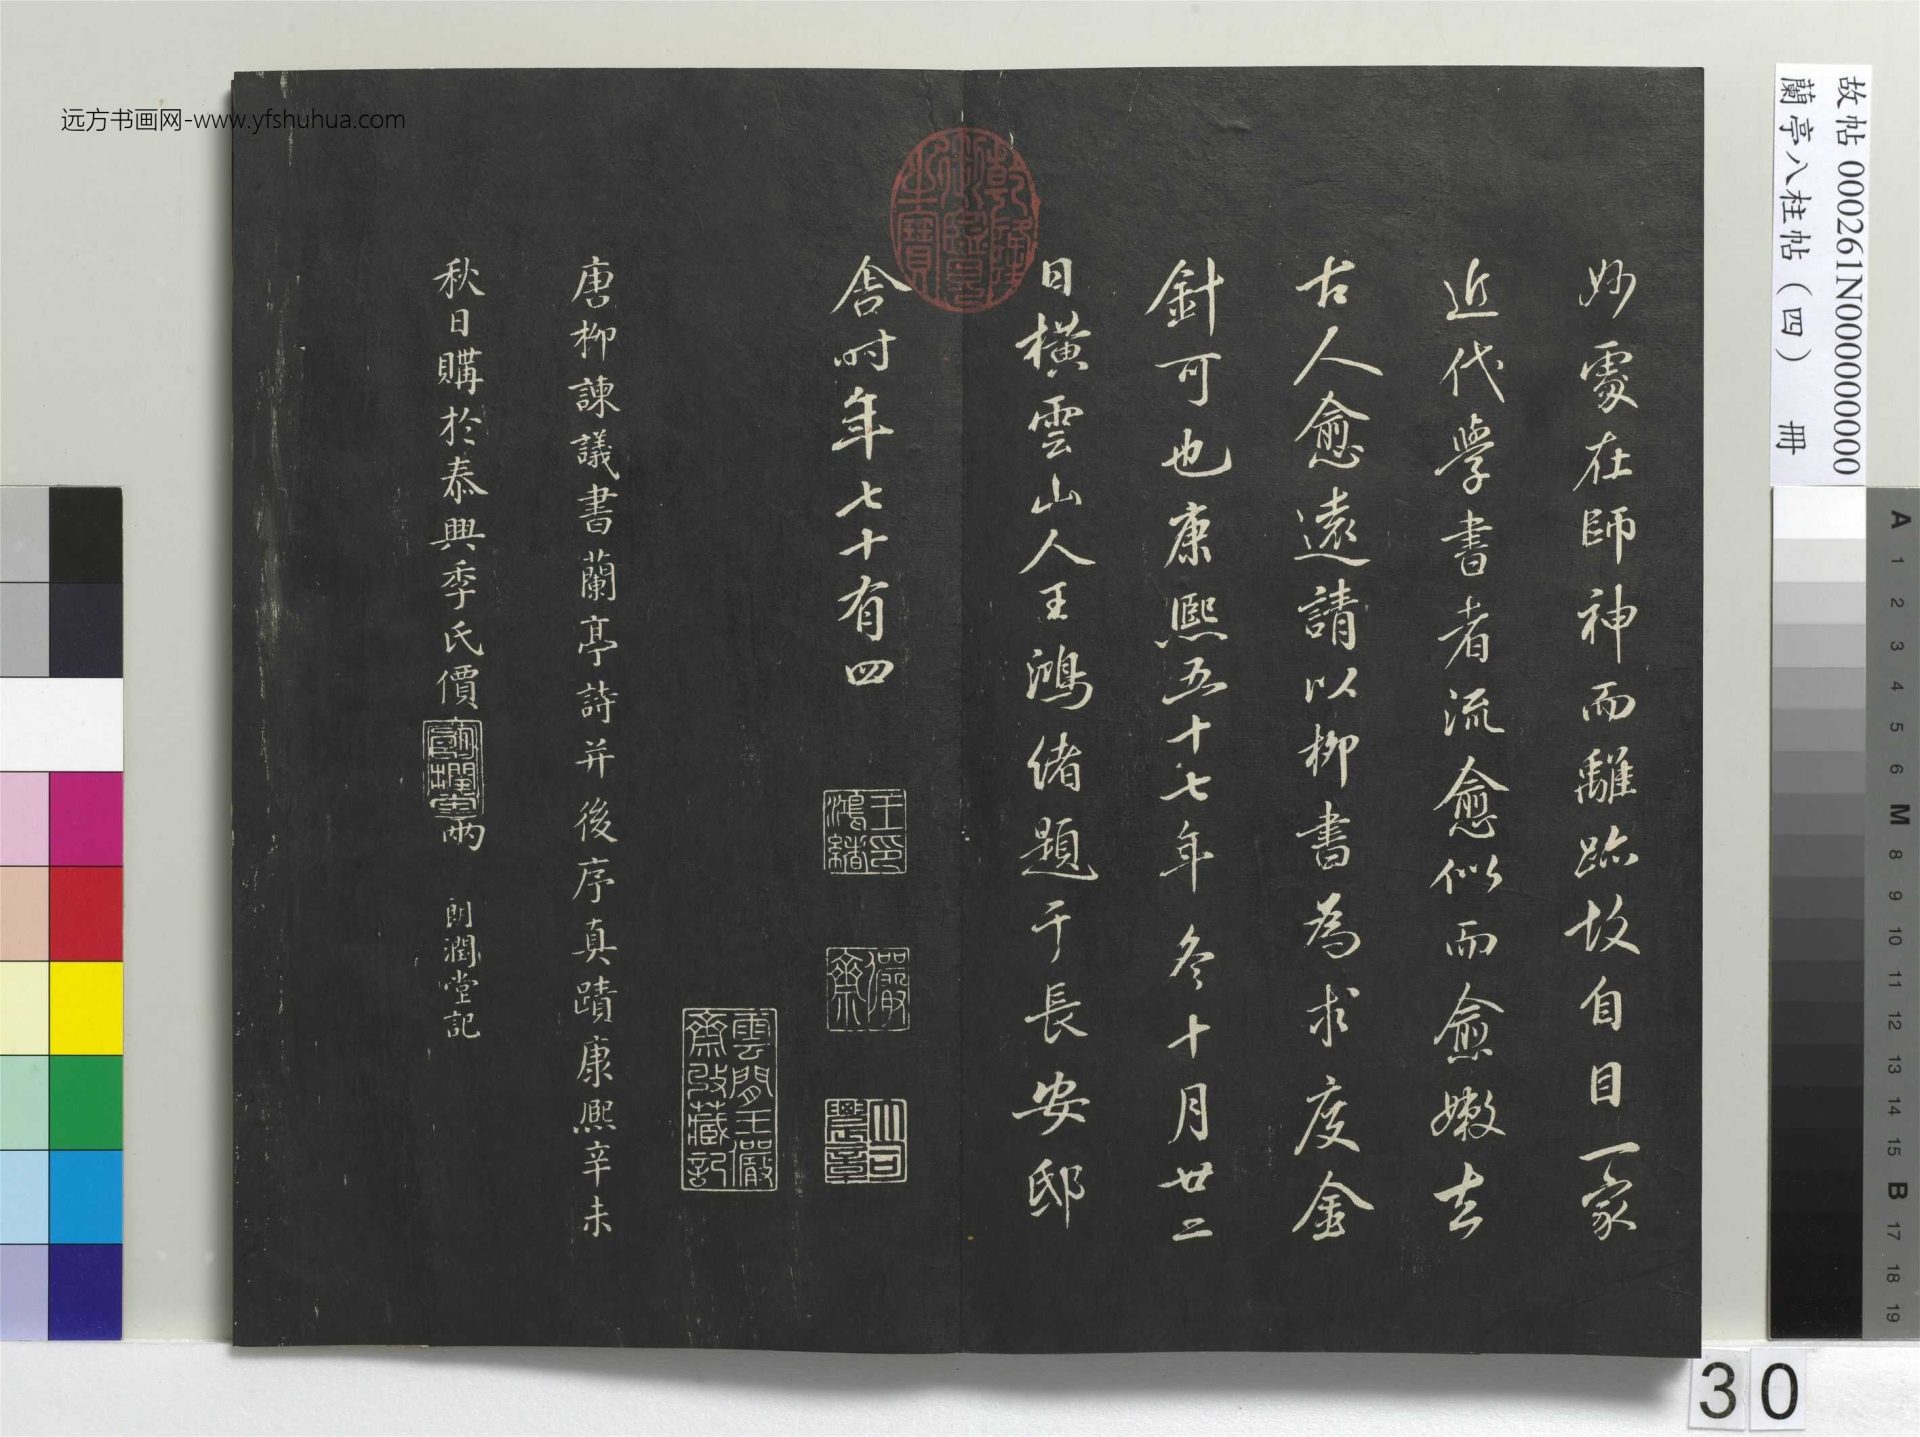 妙處在師神而離跡故自目一家
近代學書者流愈似而愈嫩去
古人愈遠請以柳書為求度金
針可也康熙五十七年冬十月廿二
日橫雲山人王鴻緒題于長安邸
舍时年七十有四
王印鴻緒
儼齋
雲間王儼齋收藏記
唐柳諫議書蘭亭詩并後序真蹟康熙辛未
秋日購於泰興季氏價
兩
朗潤堂記
乾隆御覽之寶
远方书画网-www.yfshuhua.com
故帖 000261N000000000
蘭亭八柱帖(四) 冊
A 1 2 3 4 5 6 M 8 9 10 11 12 13 14 15 B 17 18 19
30